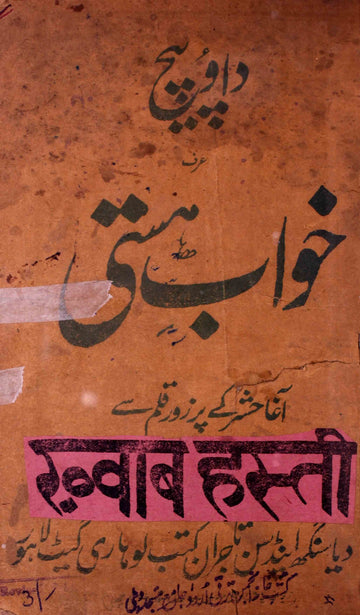 داؤ پیچ
عرف
خواب ہستی
آغا حشر کے پرزور قلم سے
ख़्वाब हस्ती
دیا سنگھ اینڈ سنز تاجران کتب لوہاری گیٹ لاہور
3/-